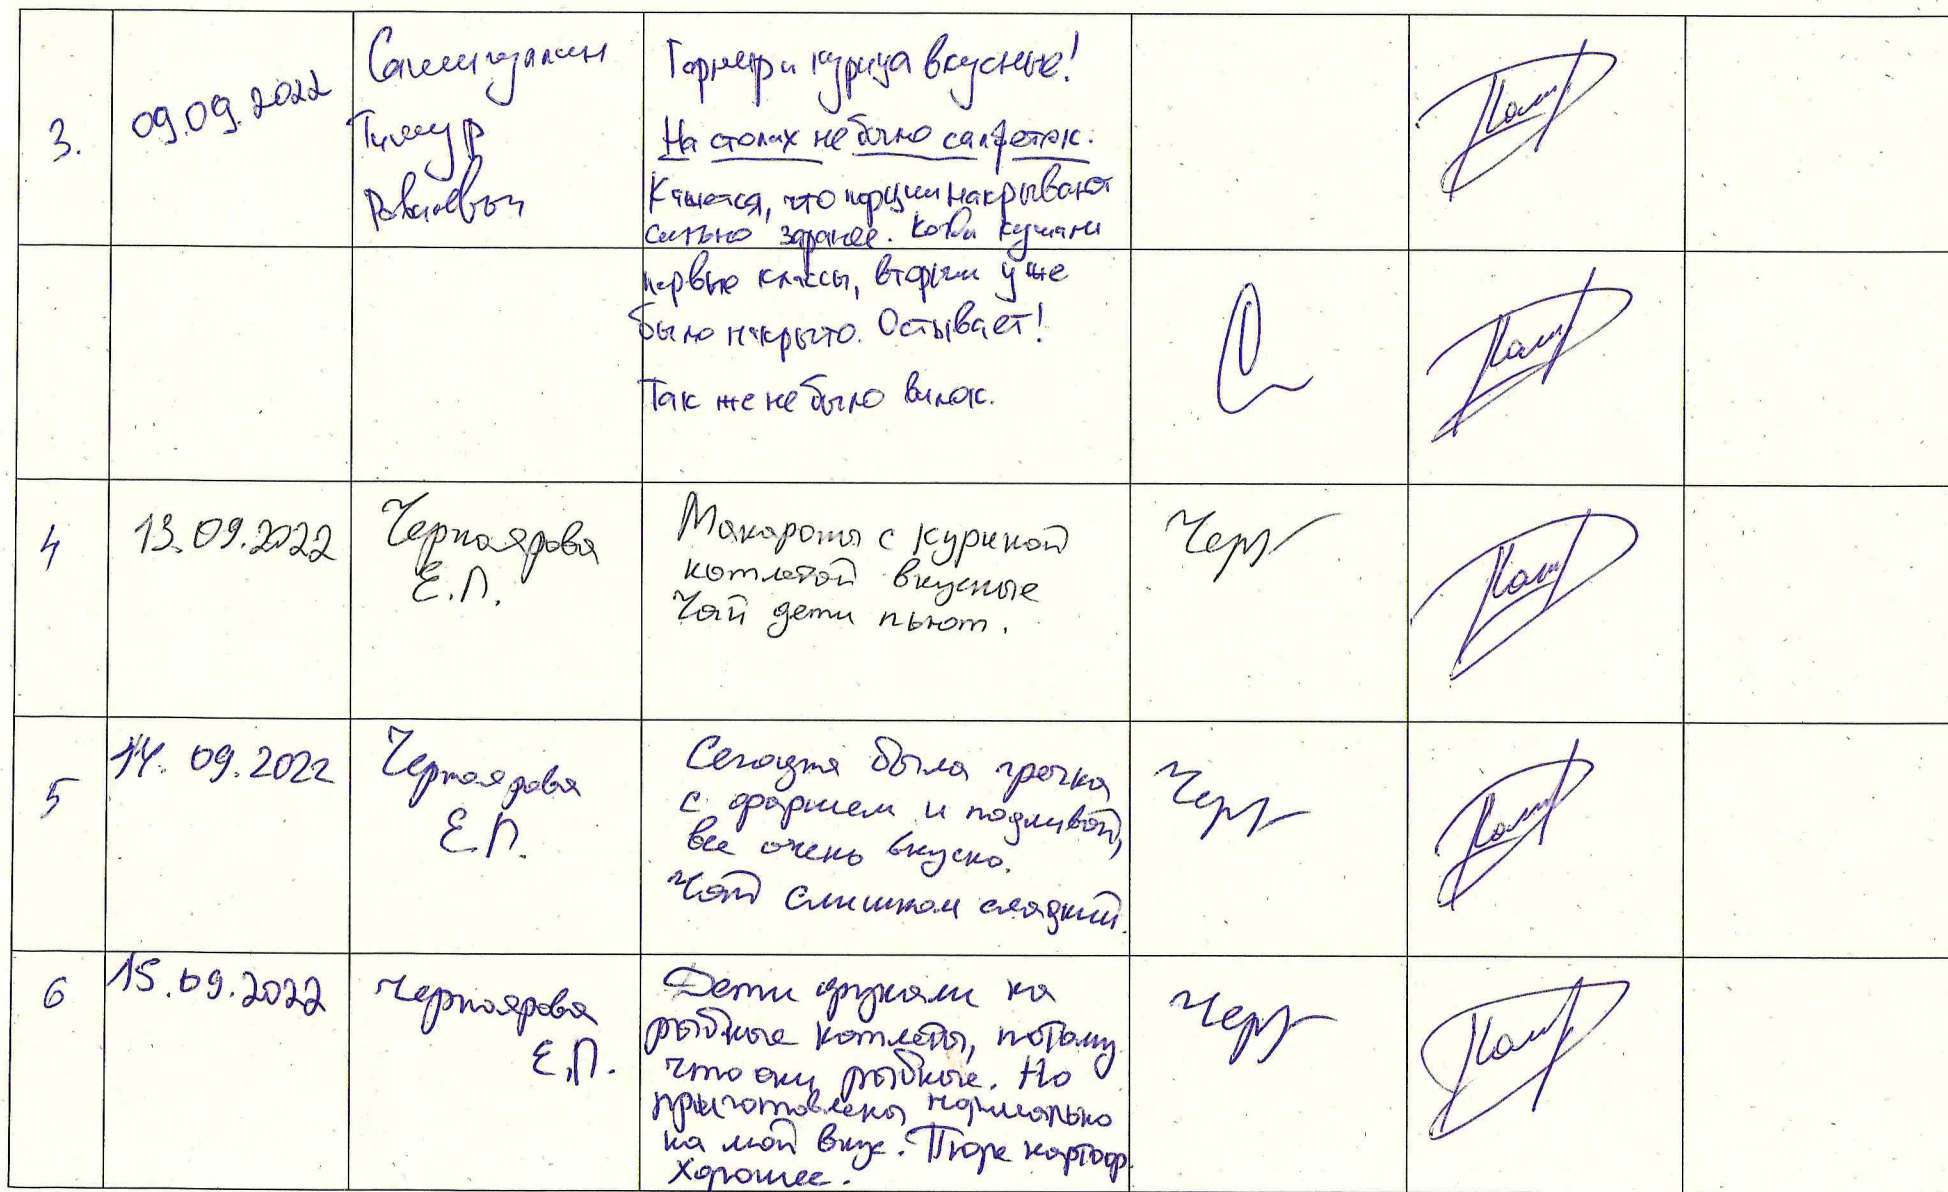 3.
09.09.2022
Тимур
Гарнир и курица вкусные!
На столах не было салфеток.
Кажется, что порции накрывают
сильно заранее. Когда кушали
первые классы, вторым уже
было накрыто. Остывает!
Так же не было вилок.
4
13.09.2022
Черноярова
Е.П.
Макароны с куриной
котлетой вкусные
Чай дети пьют.
Чер
5
14.09.2022
Черноярова
Е.П.
Сегодня была гречка
с фаршем и подливой,
все очень вкусно.
Чай слишком сладкий.
Чер
6
15.09.2022
Черноярова
Е.П.
Дети фукали на
рыбные котлеты, потому
что они рыбные. Но
приготовлены нормально
на мой вкус. Пюре картоф.
хорошее.
Чер